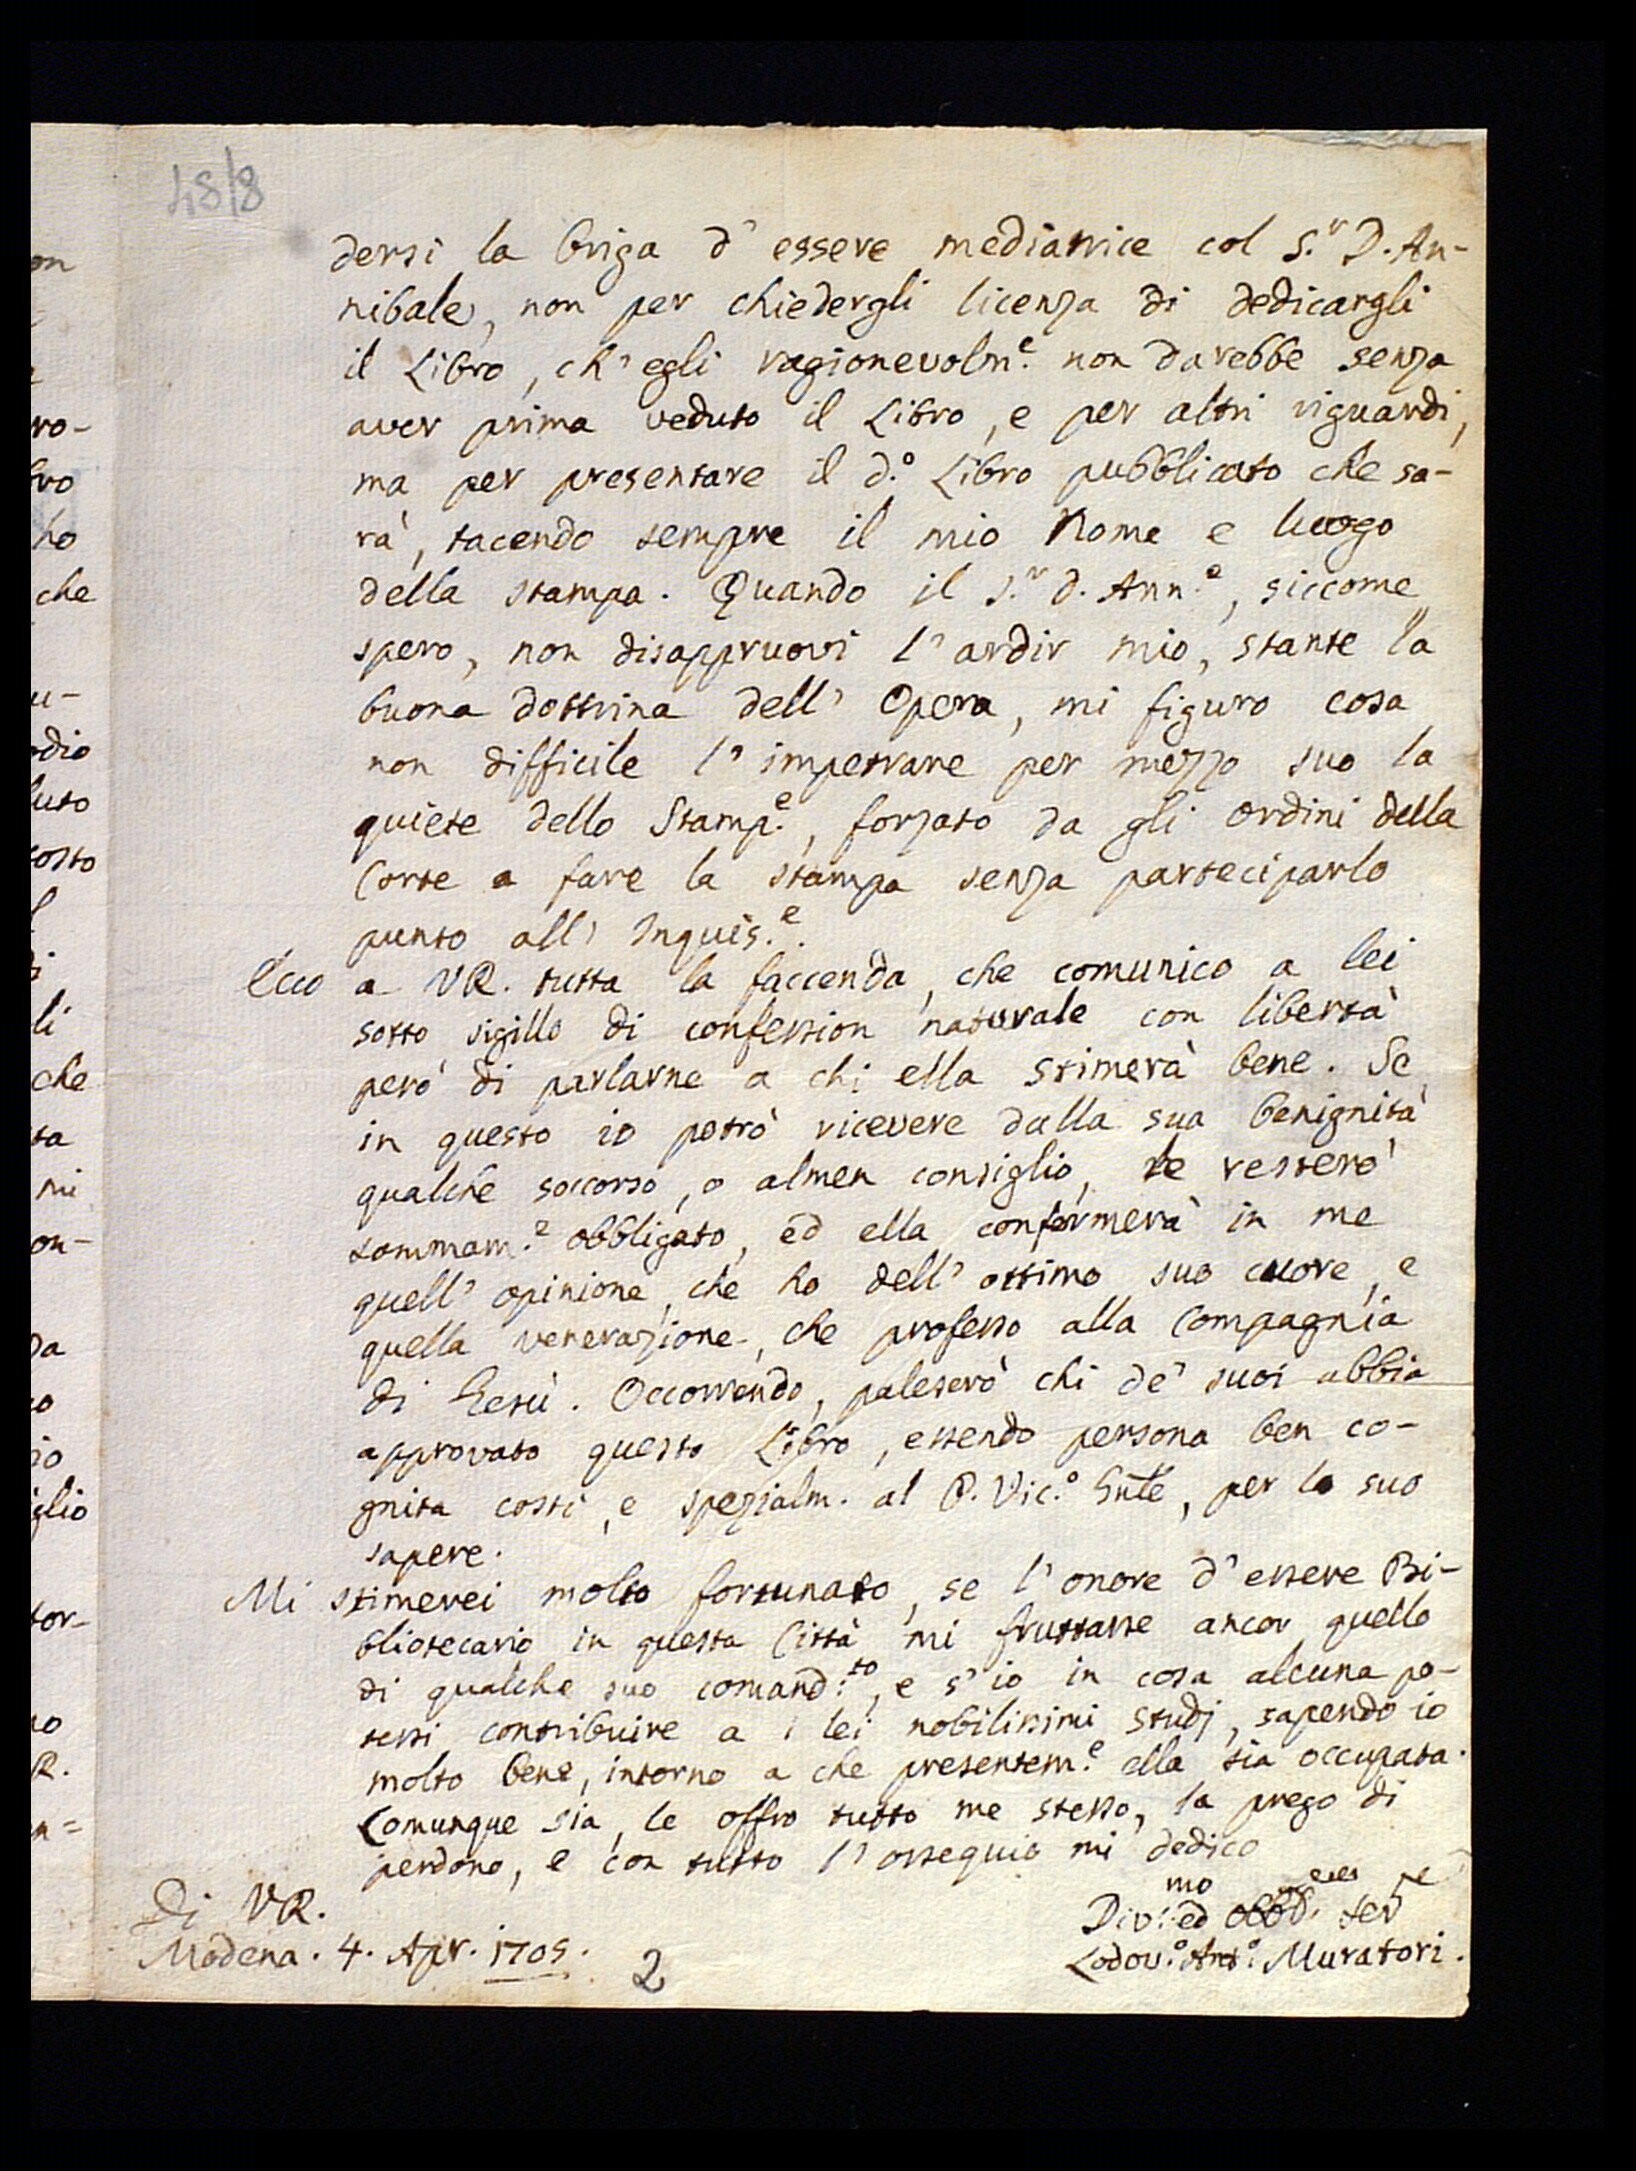 48/8
dersi la briga d' essere mediatrice col S.r D. An-
nibale, non per chiedergli licenza di dedicargli
il Libro, ch' egli ragionevolm.e non darebbe senza
aver prima veduto il Libro, e per altri riguardi,
ma per presentare il d.o Libro pubblicato che sa-
rà, tacendo sempre il mio Nome e luogo
della stampa. Quando il S.r D. Ann.e, siccome
spero, non disappruovi l' ardir mio, stante la
buona dottrina dell' Opera, mi figuro cosa
non difficile l' impetrare per mezzo suo la
quiete dello Stamp.e, forzato da gli ordini della
Corte a fare la stampa senza parteciparlo
punto all' Inquis.e.
Ecco a VR. tutta la faccenda, che comunico a lei
sotto sigillo di confession naturale con libertà
però di parlarne a chi ella stimerà bene. Se
in questo io potrò ricevere dalla sua benignità
qualche soccorso, o almen consiglio, le resterò
sommam.e obbligato, ed ella confermerà in me
quell' opinione, che ho dell' ottimo suo cuore, e
quella venerazione, che professo alla Compagnia
di Gesù. Occorrendo, paleserò chi de' suoi abbia
approvato questo Libro, essendo persona ben co-
gnita costì, e spezialm. al P. Vic.o Gnle, per lo suo
sapere.
Mi stimerei molto fortunato, se l' onore d' essere Bi-
bliotecario in questa Città mi fruttasse ancor quello
di qualche suo comand.to, e s' io in cosa alcuna po-
tessi contribuire a i lei nobilissimi studj, sapendo io
molto bene, intorno a che presentem.e ella sia occupata.
Comunque sia, le offro tutto me stesso, la prego di
perdono, e con tutto l' ossequio mi dedico
Di VR.
Modena. 4. Apr. 1705.
Div.mo ed obb. ser.re
Lodov.o Ant.o Muratori.
2
on
ro-
bro
ho
che
u-
odio
luto
costo
li
che
ta
mi
on-
da
io
glio
tor-
no
R.
n=